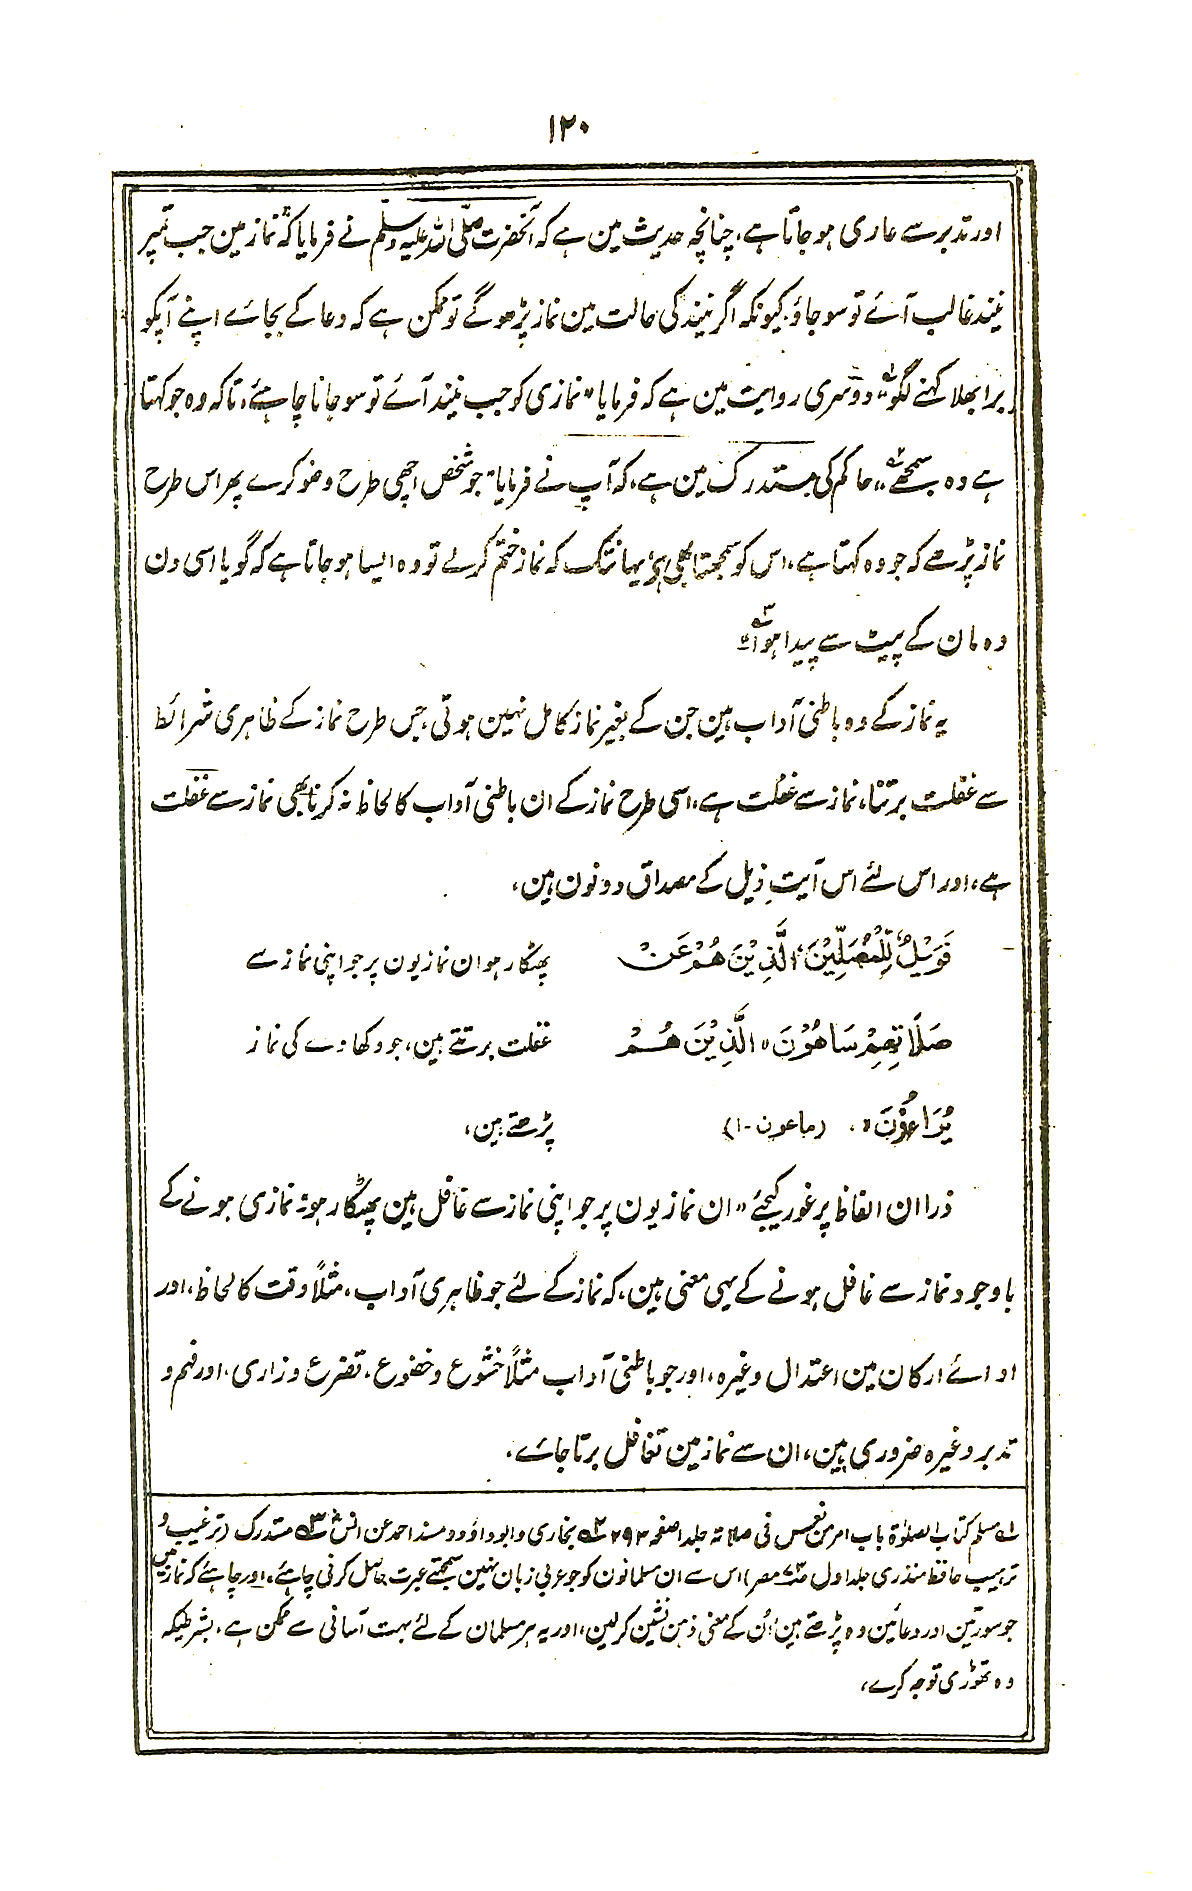 ۱۲۰
اور تدبر سے عاری ہوجاتا ہے، چنانچہ حدیث مین ہے کہ آنحضرت صلی اللہ علیہ وسلم نے فرمایا کہ "نماز مین جب تمپر
نیند غالب آئے تو سو جاؤ، کیونکہ اگر نیند کی حالت مین نماز پڑھوگے تو ممکن ہے کہ دعا کے بجائے اپنے آپکو
برا بھلا کہنے لگو" دوسری روایت مین ہے کہ فرمایا "نمازی کو جب نیند آئے تو سو جانا چاہئے، تاکہ وہ جو کہتا
ہے وہ سمجھے"، حاکم کی مستدرک مین ہے، کہ آپ نے فرمایا "جو شخص اچھی طرح وضو کرے پھر اس طرح
نماز پڑھے کہ جو وہ کہتا ہے، اس کو سمجھتا بھی ہو، یہانتک کہ نماز ختم کرلے تو وہ ایسا ہوجاتا ہے کہ گویا اسی دن
وہ مان کے پیٹ سے پیدا ہوا"
یہ نماز کے وہ باطنی آداب ہین جن کے بغیر نماز کامل نہین ہوتی، جس طرح نماز کے ظاہری شرائط
سے غفلت برتنا، نماز سے غفلت ہے، اسی طرح نماز کے ان باطنی آداب کا لحاظ نہ کرنا بھی نماز سے غفلت
ہے، اور اس لئے اس آیتِ ذیل کے مصداق دونون ہین،
فَوَيْلٌ لِّلْمُصَلِّيْنَ، الَّذِيْنَ هُمْ عَنْ پھٹکار ہو ان نمازیون پر جو اپنی نماز سے
صَلَاتِهِمْ سَاهُوْنَ، الَّذِيْنَ هُمْ غفلت برتتے ہین، جو دکھاوے کی نماز
يُرَاءُوْنَ، (ماعون-۱) پڑھتے ہین،
ذرا ان الفاظ پر غور کیجئے "ان نمازیون پر جو اپنی نماز سے غافل ہین پھٹکار ہو" نمازی ہونے کے
باوجود نماز سے غافل ہونے کے یہی معنی ہین، کہ نماز کے لئے جو ظاہری آداب، مثلاً وقت کا لحاظ، اور
ادائے ارکان مین اعتدال وغیرہ، اور جو باطنی آداب مثلاً خشوع و خضوع، تضرع و زاری، اور فہم و
تدبر وغیرہ ضروری ہین، ان سے نماز مین تغافل برتا جائے،
لہ مسلم کتاب الصلوٰۃ باب امر من نعس فی صلاتہ جلد اصفحہ ۲۹۲ ۲ہ بخاری و ابوداؤد و مسند احمد عن انس ۳ہ مستدرک (ترغیب و
ترہیب حافظ منذری جلد اول مصر) اس سے ان مسلمانون کو جو عربی زبان نہین سمجھتے عبرت حاصل کرنی چاہئے، اور چاہئے کہ نماز مین
جو سورتین اور دعائین وہ پڑھتے ہین، اُن کے معنی ذہن نشین کرلین، اور یہ ہر مسلمان کے لئے بہت آسانی سے ممکن ہے، بشرطیکہ
وہ تھوڑی توجہ کرے،